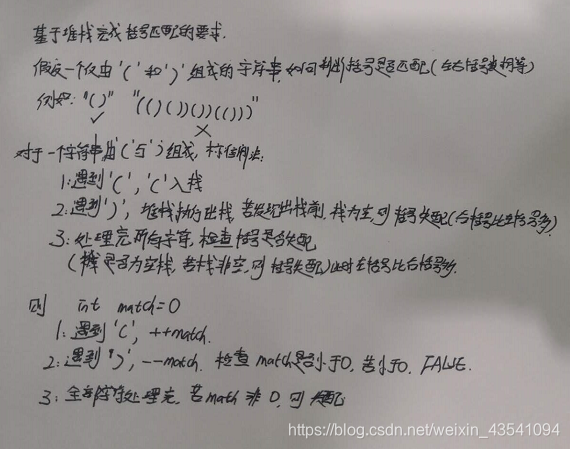 基于堆栈完成括号匹配的要求.
假设一个仅由'('和')'组成的字符串,如何判断括号是否匹配(左右括号数相等)
例如: "()" "(()())())(()))"
✓ ×
对于一个字符串由'('与')'组成,
1:遇到'(', '('入栈
2:遇到')', 堆栈执行出栈, 若发现出栈前, 栈为空,则括号失配(右括号比左括号多).
3:处理完所有字符, 检查括号是否失配
(栈是否为空栈, 若栈非空, 则括号失配)此时左括号比右括号多.
则 int match=0
1:遇到'(', ++match.
2:遇到')', --match. 检查match是否小于0, 若小于0, FALSE.
3:全部字符处理完, 若math非0,则失配
https://blog.csdn.net/weixin_43541094